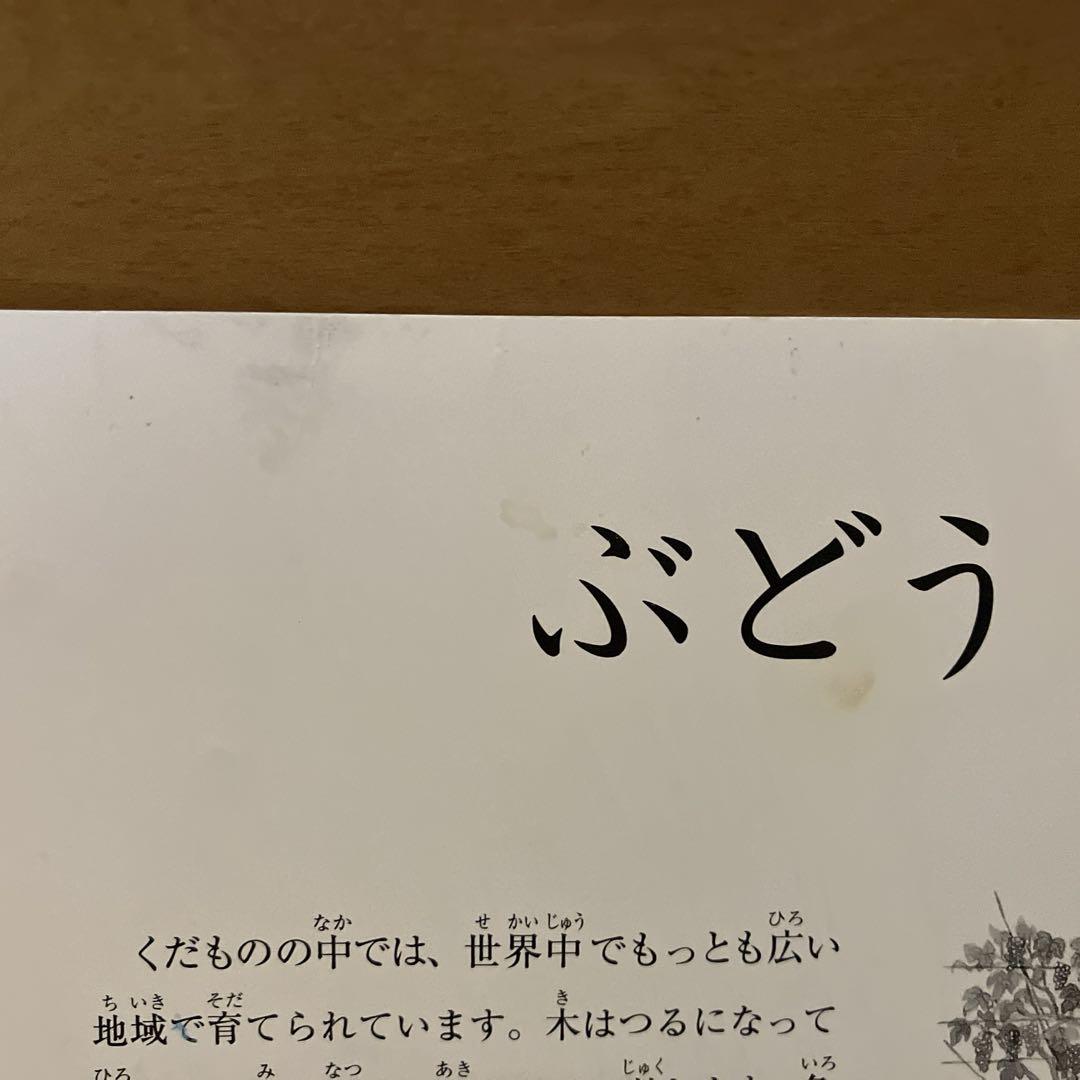 ぶどう
くだものの中では、世界中でもっとも広い
地域で育てられています。木はつるになって